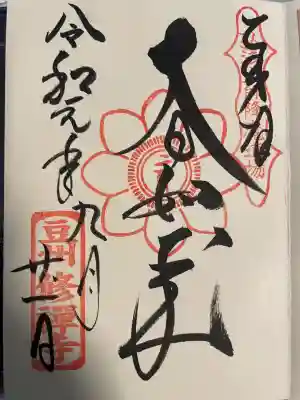 奉拝
大日如来
令和元年九月
廿一日
豆州修禅寺